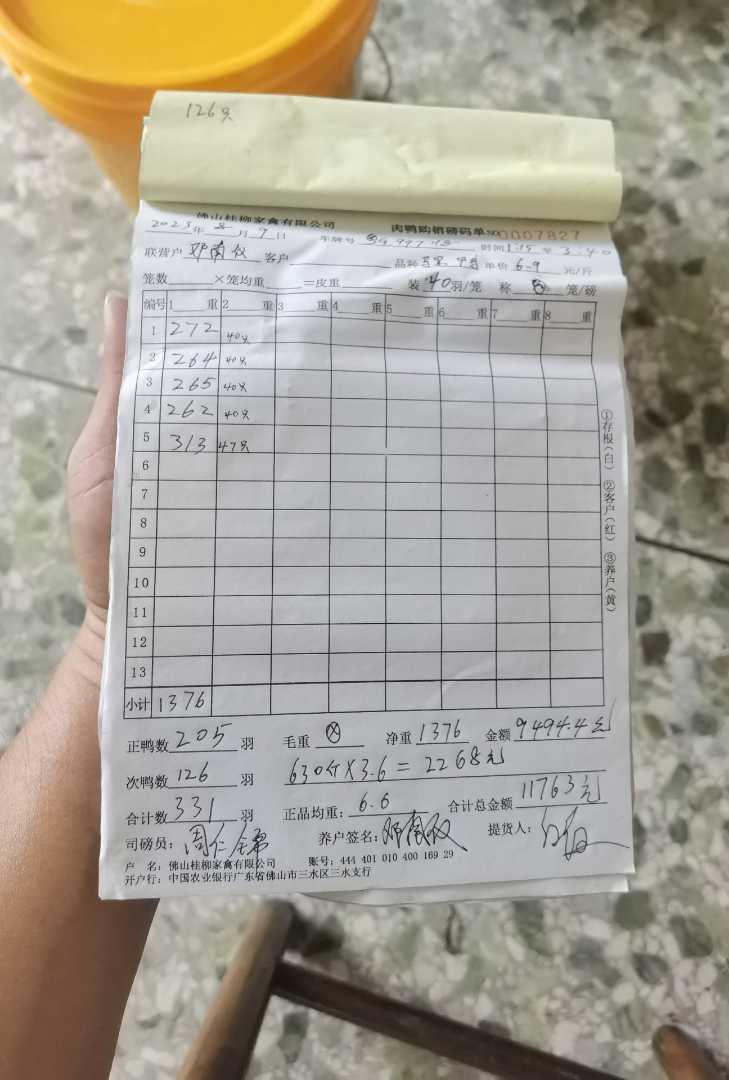 126只
佛山桂柳家禽有限公司 肉鸭购销磅码单 NO 0007827
2023年8月9日 车牌号 时间 1:15 至 3:40
联营户 邓南权 客户 品种 单价 6.9 元/斤
笼数 ×笼均重 =皮重 装 40 羽/笼 称 笼/磅
编号 1 重 2 重 3 重 4 重 5 重 6 重 7 重 8 重
1 272 40只
2 264 40只
3 265 40只
4 262 40只
5 313 47只
6
7
8
9
10
11
12
13
小计 1376
①存根(白) ②客户(红) ③养户(黄)
正鸭数 205 羽 毛重 净重 1376 金额 9494.4元
次鸭数 126 羽 630斤×3.6=2268元
合计数 331 羽 正品均重: 6.6 合计总金额 11763元
司磅员: 养户签名: 邓南权 提货人:
户 名: 佛山桂柳家禽有限公司 账号: 444 401 010 400 169 29
开户行: 中国农业银行广东省佛山市三水区三水支行